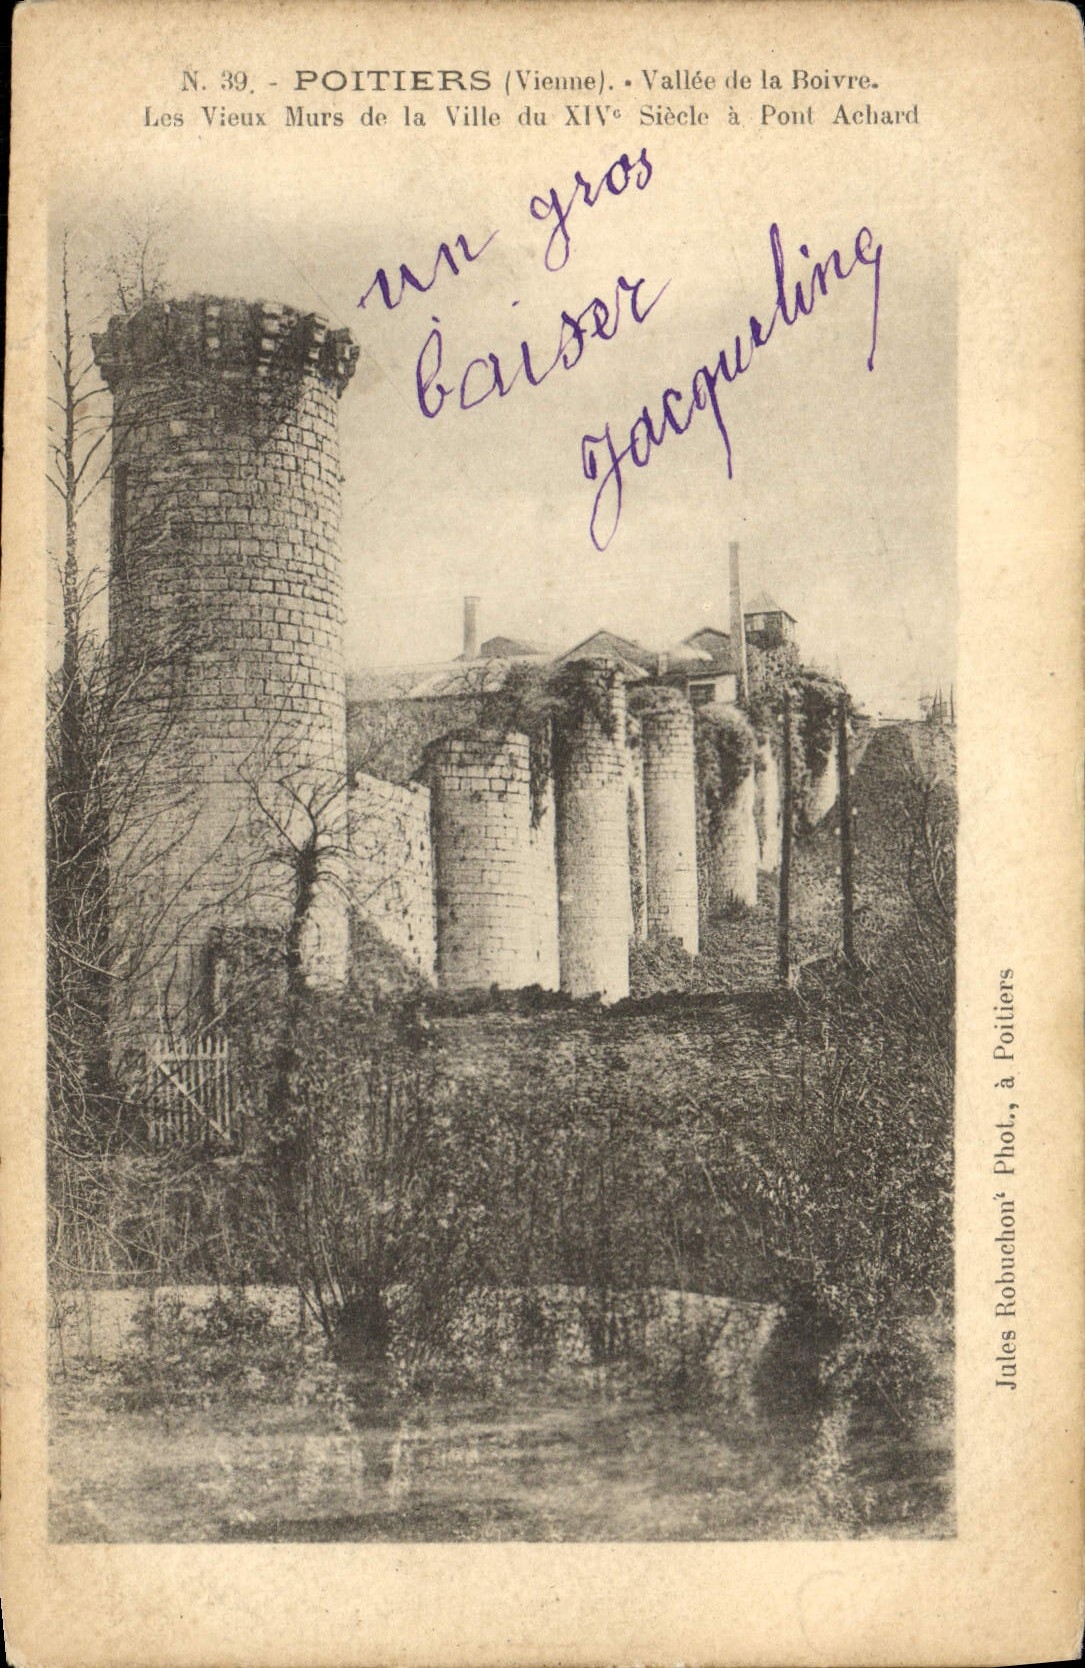 N. 39. - POITIERS (Vienne). - Vallée de la Boivre.
Les Vieux Murs de la Ville du XIVe Siècle à Pont Achard
un gros
baiser
Jacqueline
Jules Robuchon, Phot., à Poitiers